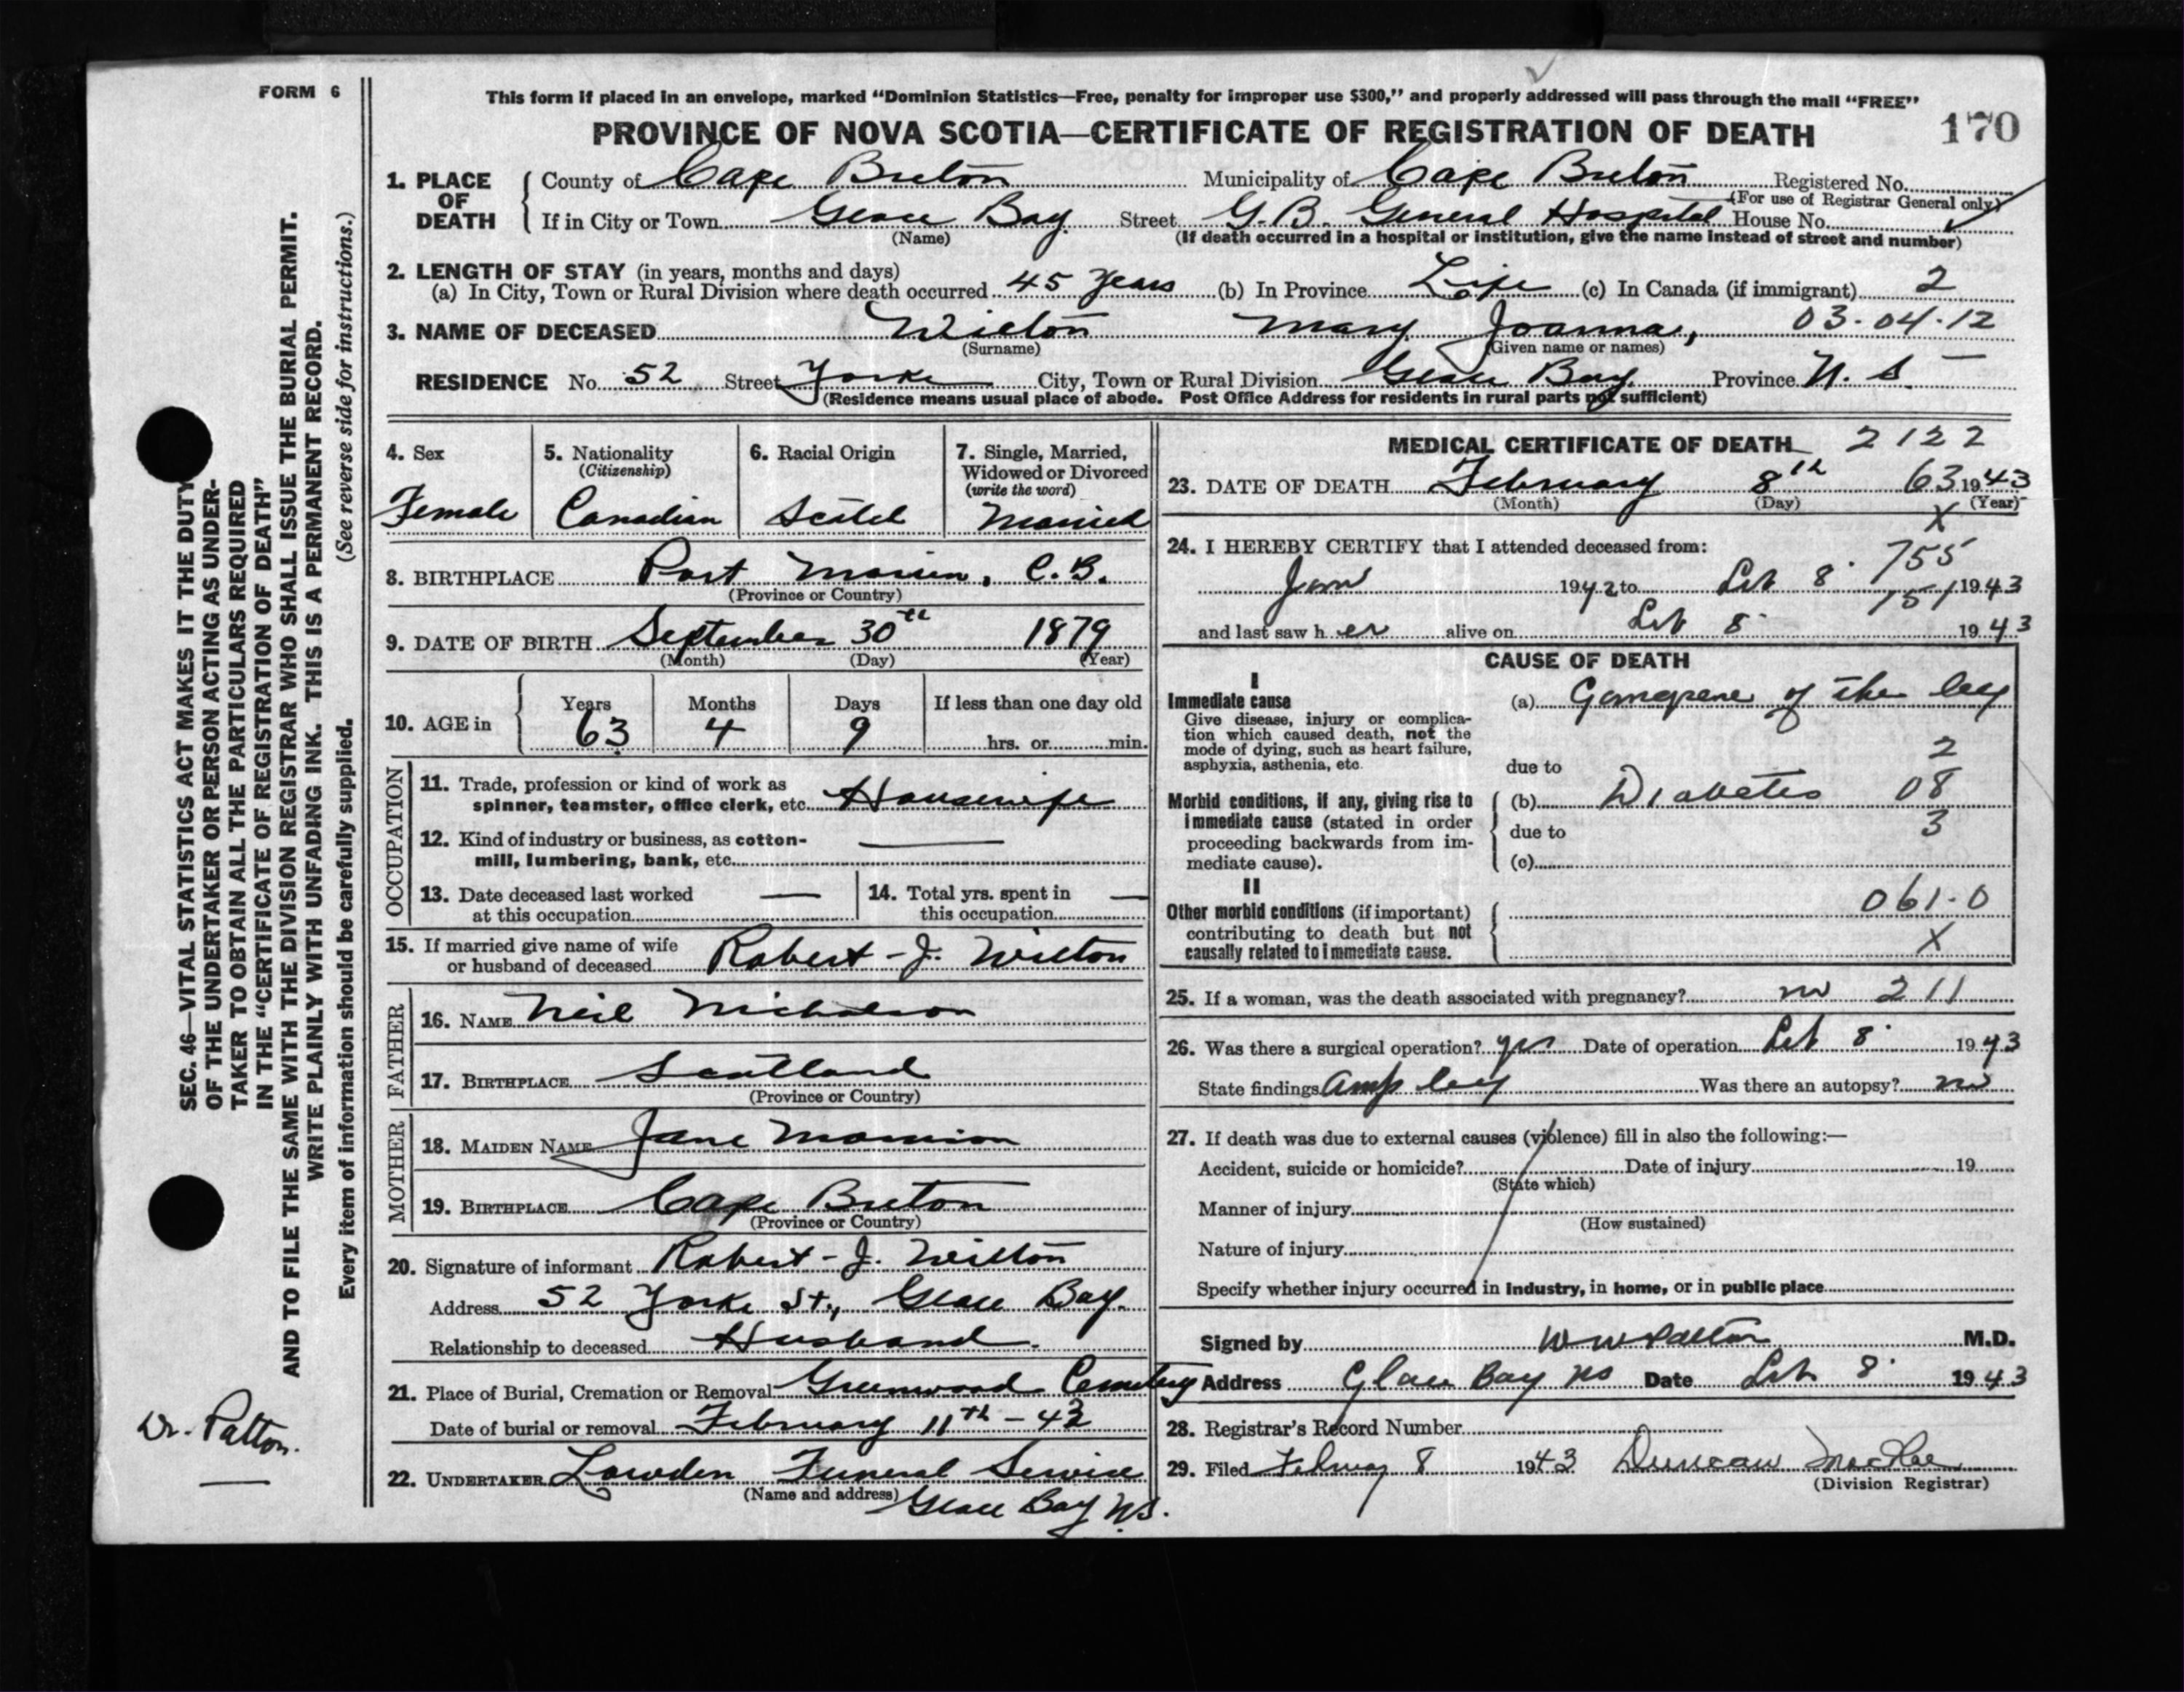 FORM 6
This form if placed in an envelope, marked “Dominion Statistics—Free, penalty for improper use $300,” and properly addressed will pass through the mail “FREE”
PROVINCE OF NOVA SCOTIA—CERTIFICATE OF REGISTRATION OF DEATH
170
1. PLACE OF DEATH
County of Cape Breton Municipality of Cape Breton Registered No.
(For use of Registrar General only)
If in City or Town Glace Bay Street G.B. General Hospital House No.
(Name) (If death occurred in a hospital or institution, give the name instead of street and number)
2. LENGTH OF STAY (in years, months and days)
(a) In City, Town or Rural Division where death occurred 45 years (b) In Province Life (c) In Canada (if immigrant) 2
3. NAME OF DECEASED Wilton Mary Joanna, 03-04-12
(Surname) (Given name or names)
RESIDENCE No. 52 Street Yorke City, Town or Rural Division Glace Bay. Province N.S.
(Residence means usual place of abode. Post Office Address for residents in rural parts not sufficient)
4. Sex
Female
5. Nationality
(Citizenship)
Canadian
6. Racial Origin
Scotch
7. Single, Married,
Widowed or Divorced
(write the word)
Married
8. BIRTHPLACE Port Morien, C.B.
(Province or Country)
9. DATE OF BIRTH September 30th 1879
(Month) (Day) (Year)
10. AGE in
Years Months Days If less than one day old
63 4 9 hrs. or min.
OCCUPATION
11. Trade, profession or kind of work as
spinner, teamster, office clerk, etc. Housewife
12. Kind of industry or business, as cotton-
mill, lumbering, bank, etc. —
13. Date deceased last worked
at this occupation —
14. Total yrs. spent in
this occupation —
15. If married give name of wife
or husband of deceased Robert - J. Wilton
FATHER
16. NAME Neil Nicholson
17. BIRTHPLACE Scotland
(Province or Country)
MOTHER
18. MAIDEN NAME Jane Morrison
19. BIRTHPLACE Cape Breton
(Province or Country)
20. Signature of informant Robert - J. Wilton
Address 52 Yorke St., Glace Bay.
Relationship to deceased Husband.
21. Place of Burial, Cremation or Removal Greenwood Cemetery
Date of burial or removal February 11th - 43
22. UNDERTAKER Lowden Funeral Service
(Name and address) Glace Bay N.S.
MEDICAL CERTIFICATE OF DEATH 2122
23. DATE OF DEATH February 8th 63 1943
(Month) (Day) (Year)
X
24. I HEREBY CERTIFY that I attended deceased from:
755
Jan 1942 to Feb 8 1943
151
and last saw her alive on Feb 8 1943
CAUSE OF DEATH
I
Immediate cause
Give disease, injury or complica-
tion which caused death, not the
mode of dying, such as heart failure,
asphyxia, asthenia, etc.
(a) Gangrene of the leg
2
due to
Morbid conditions, if any, giving rise to
immediate cause (stated in order
proceeding backwards from im-
mediate cause).
(b) Diabetes 08
due to 3
(c)
II
Other morbid conditions (if important)
contributing to death but not
causally related to immediate cause.
061.0
X
25. If a woman, was the death associated with pregnancy? no 211
26. Was there a surgical operation? yes Date of operation Feb 8 1943
State findings Amp leg Was there an autopsy? no
27. If death was due to external causes (violence) fill in also the following:—
Accident, suicide or homicide? Date of injury 19
(State which)
Manner of injury
(How sustained)
Nature of injury
Specify whether injury occurred in industry, in home, or in public place
Signed by W W Patton M.D.
Address Glace Bay NS Date Feb 8 1943
28. Registrar's Record Number
29. Filed February 8 1943 Duncan MacRae
(Division Registrar)
SEC. 46—VITAL STATISTICS ACT MAKES IT THE DUTY
OF THE UNDERTAKER OR PERSON ACTING AS UNDER-
TAKER TO OBTAIN ALL THE PARTICULARS REQUIRED
IN THE “CERTIFICATE OF REGISTRATION OF DEATH”
AND TO FILE THE SAME WITH THE DIVISION REGISTRAR WHO SHALL ISSUE THE BURIAL PERMIT.
WRITE PLAINLY WITH UNFADING INK. THIS IS A PERMANENT RECORD.
Every item of information should be carefully supplied. (See reverse side for instructions.)
Dr. Patton.